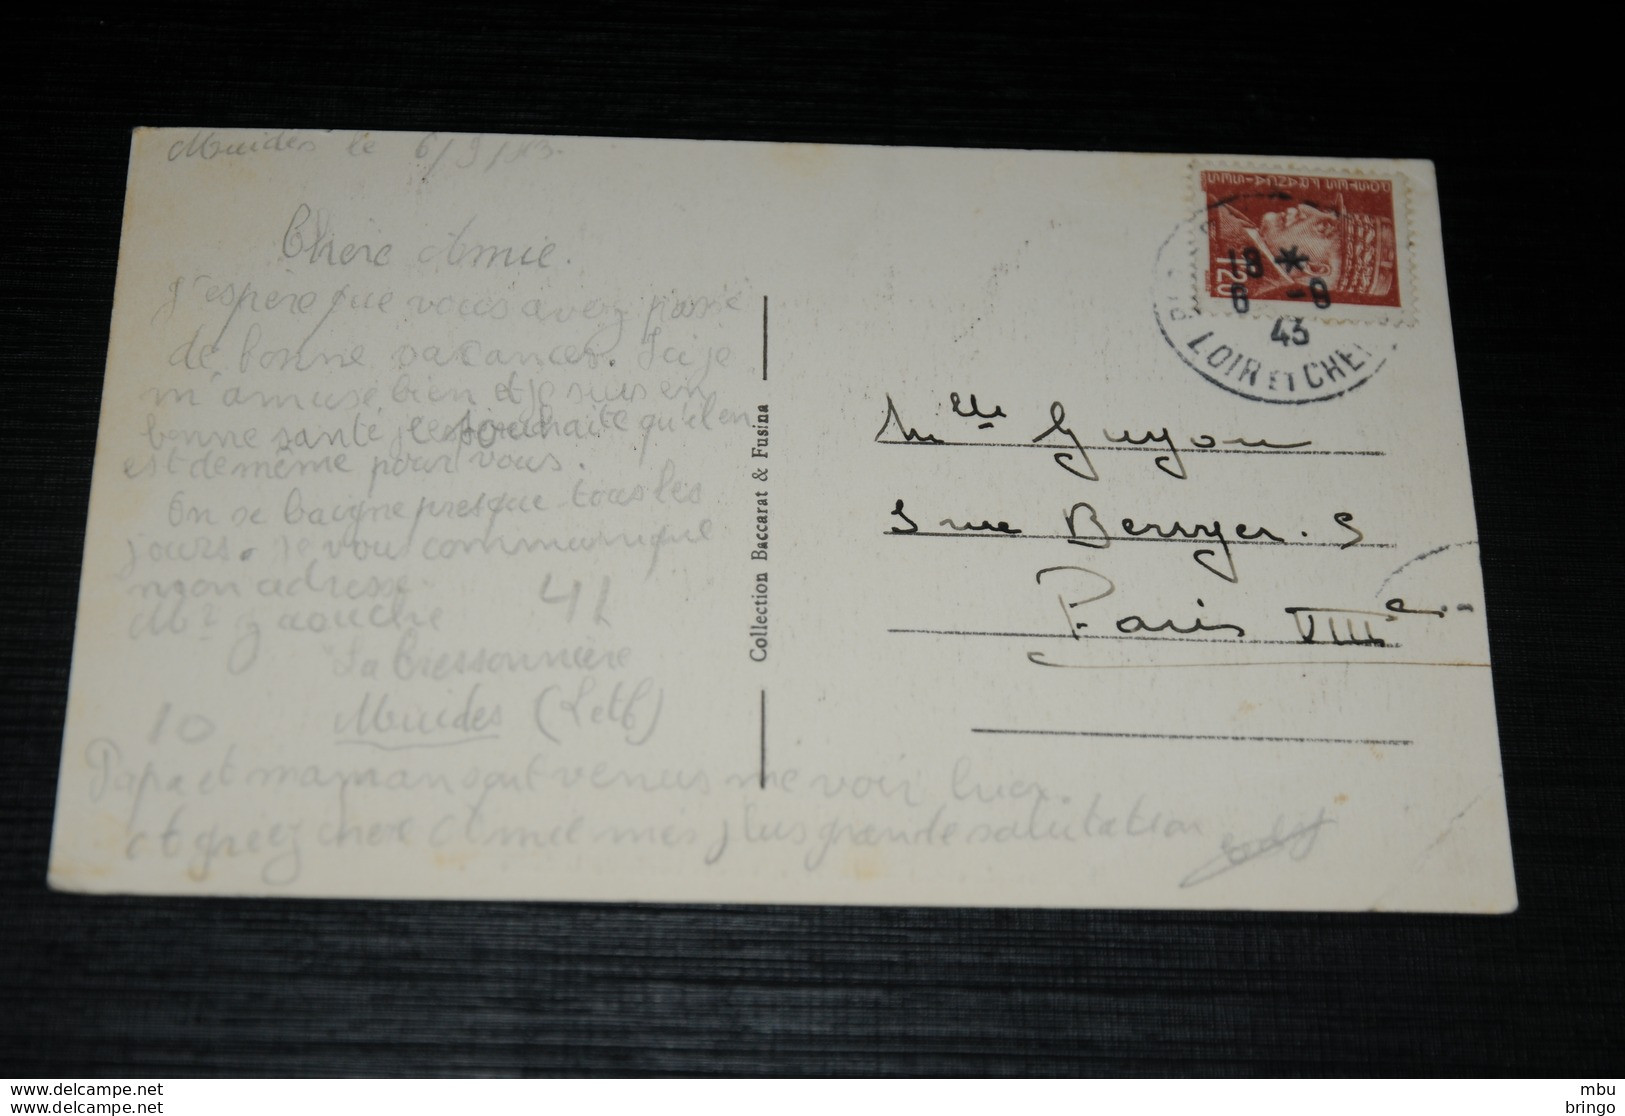 Muides le 6/9/43.
Chère Amie.
J'espère que vous avez passé
de bonne vacances. Ici je
m'amuse bien et je suis en
bonne santé je souhaite qu'il en
est de même pour vous.
On se baigne presque tous les
jours. Je vou communique
mon adresse
Mr Gaouche 41
La Bressonnière
10 Muides (L et C)
Papa et maman sont venus me voir hier.
et griez chère Amie mes plus grande salutation
Collection Baccarat & Fusina
POSTES FRANÇAISES
1F20
18 *
6 -9
43
LOIR ET CHER
Mlle Guyon
5 rue Berryer. 5
Paris VIIIe
www.delcampe.net
www.delcampe.net
mbu
bringo